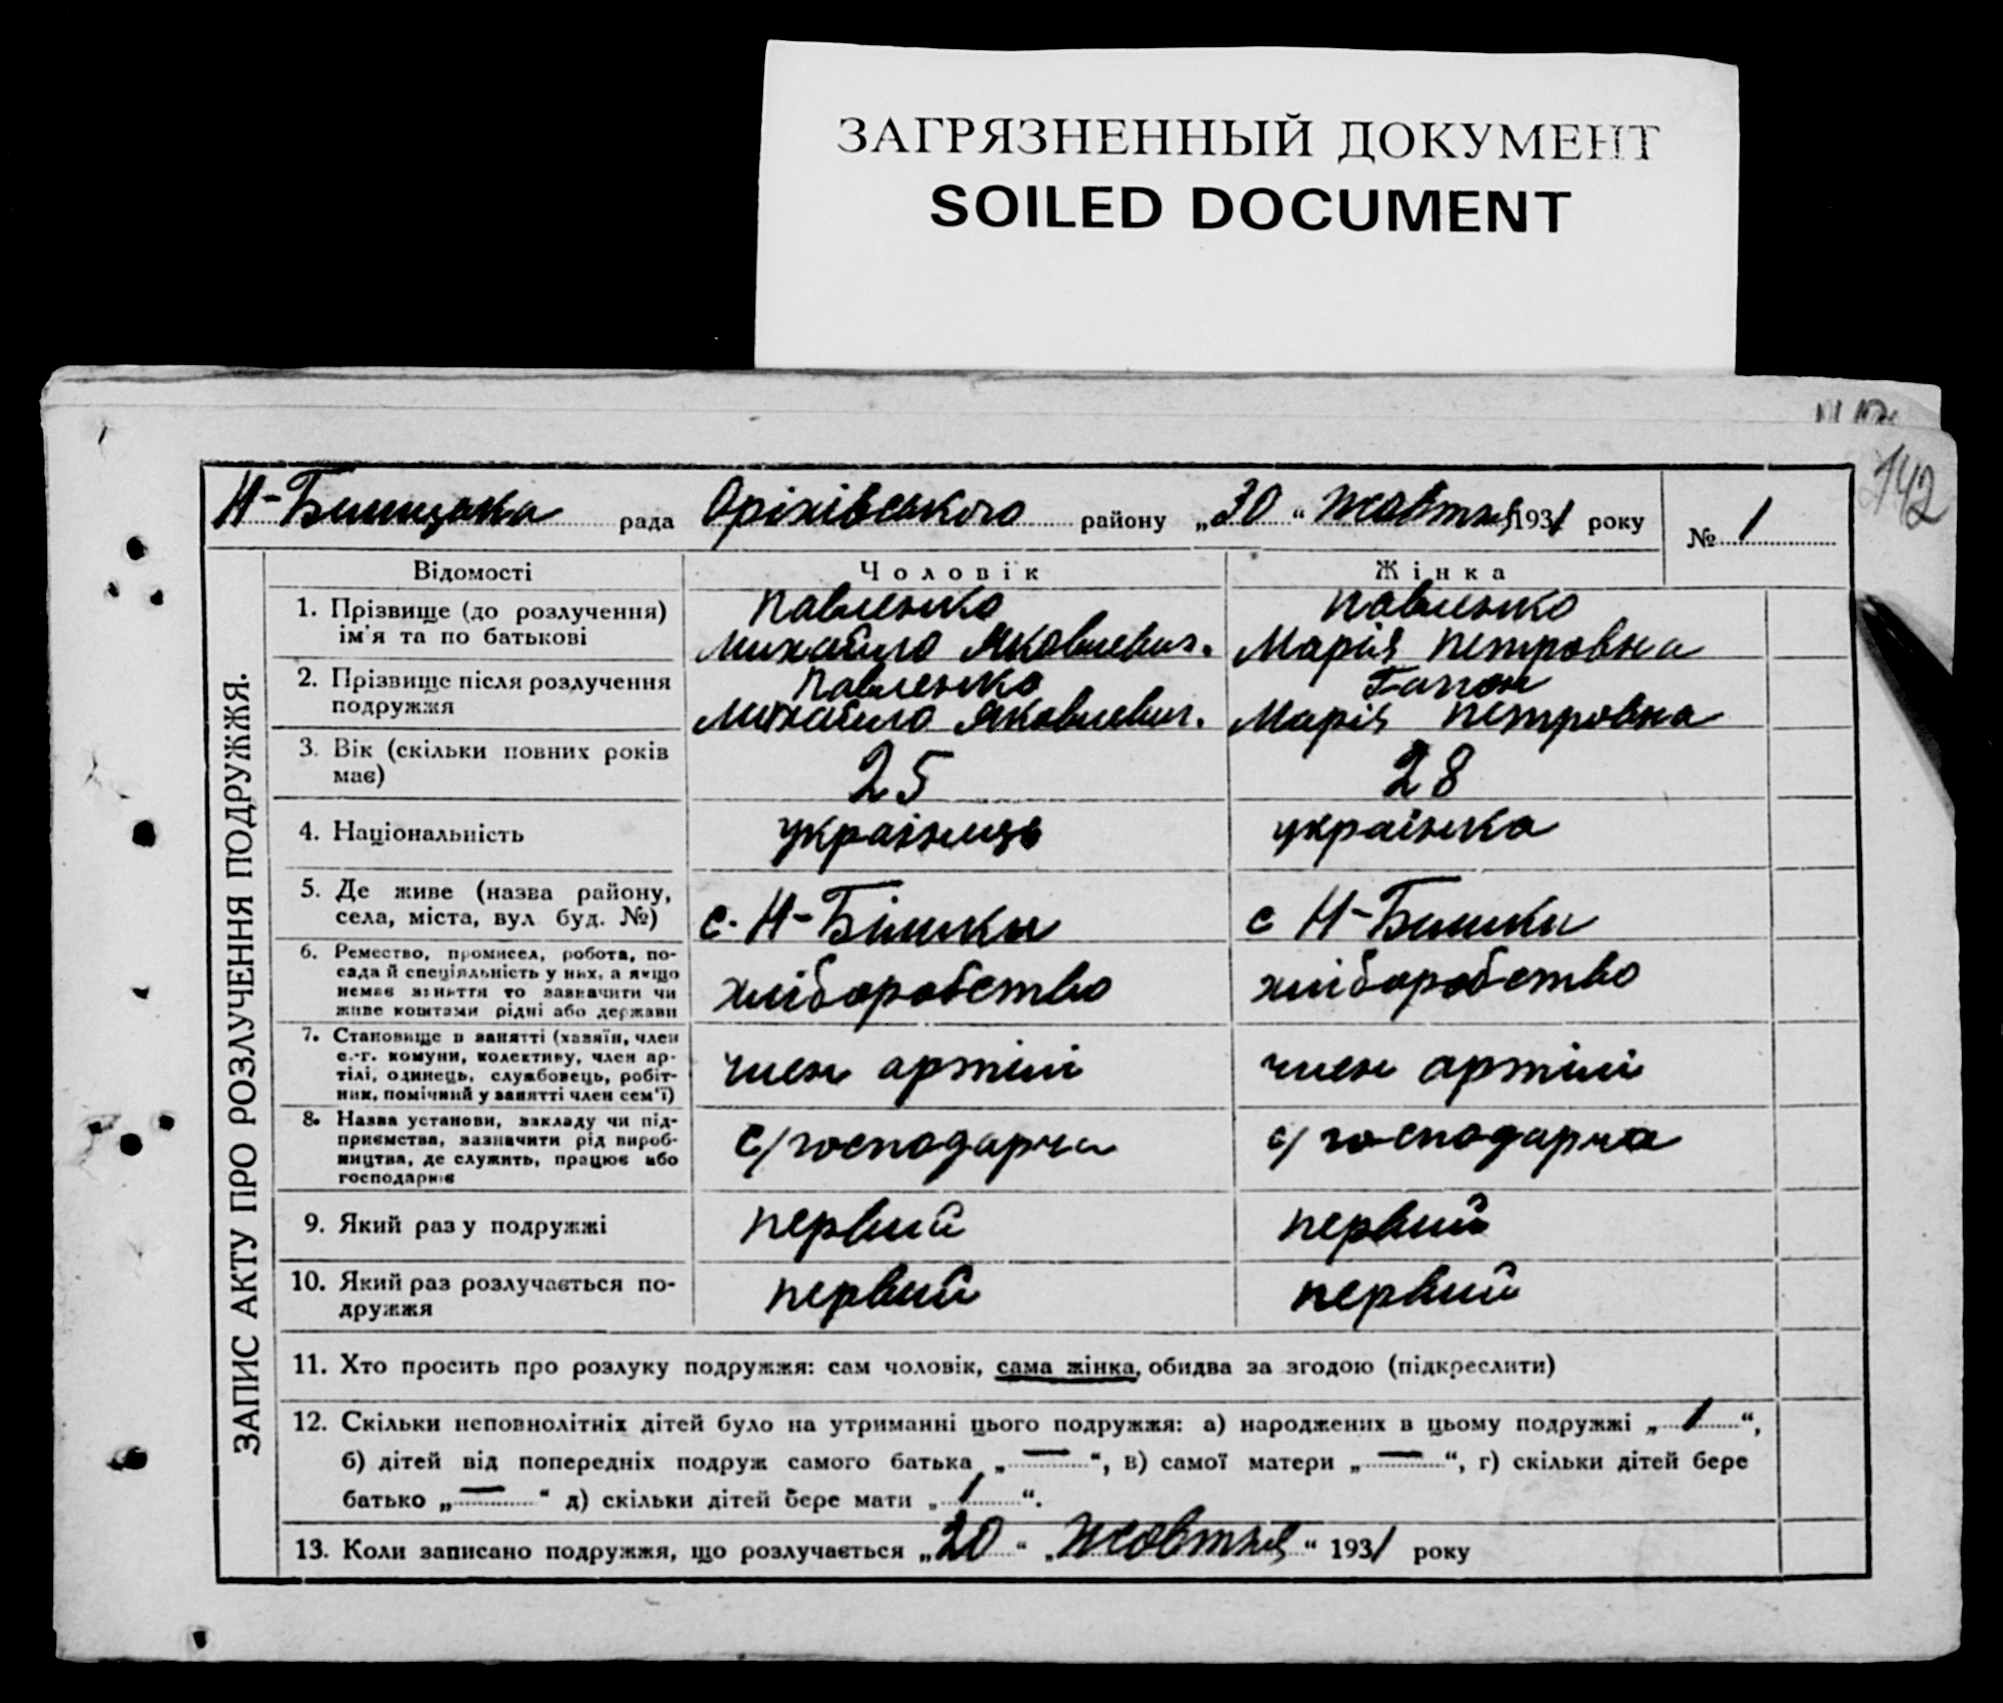 ЗАГРЯЗНЕННЫЙ ДОКУМЕНТ
SOILED DOCUMENT
142
Н-Бишицька рада Оріхівського району „30“ Жовтня 1931 року № 1
ЗАПИС АКТУ ПРО РОЗЛУЧЕННЯ ПОДРУЖЖЯ.
Відомості Чоловік Жінка
1. Прізвище (до розлучення) ім'я та по батькові
Павленко
Михайло Яковлевич.
Павленко
Марія Петровна
2. Прізвище після розлучення
подружжя
Павленко
Михайло Яковлевич.
Гапон
Марія Петровна
3. Вік (скільки повних років
має)
25 28
4. Національність українець українка
5. Де живе (назва району,
села, міста, вул буд. №)
с. Н-Бішки с Н-Бишки
6. Ремество, промисел, робота, по-
сада й спеціяльність у них, а якщо
немає заняття то зазначити чи
живе коштами рідні або держави
хліборобство хліборобство
7. Становище в занятті (хазяїн, член
с.-г. комуни, колективу, член ар-
тілі, одинець, службовець, робіт-
ник, помічний у занятті член сем'ї)
член артілі член артілі
8. Назва установи, закладу чи під-
приємства, зазначити рід вироб-
ництва, де служить, працює або
господарює
с/господарча с/господарча
9. Який раз у подружжі первий первий
10. Який раз розлучається по-
дружжя
первий первий
11. Хто просить про розлуку подружжя: сам чоловік, сама жінка, обидва за згодою (підкреслити)
12. Скільки неповнолітніх дітей було на утриманні цього подружжя: а) народжених в цьому подружжі „1“,
б) дітей від попередніх подруж самого батька „—“, в) самої матери „—“, г) скільки дітей бере
батько „—“ д) скільки дітей бере мати „1“.
13. Коли записано подружжя, що розлучається „20“ „Жовтня“ 1931 року